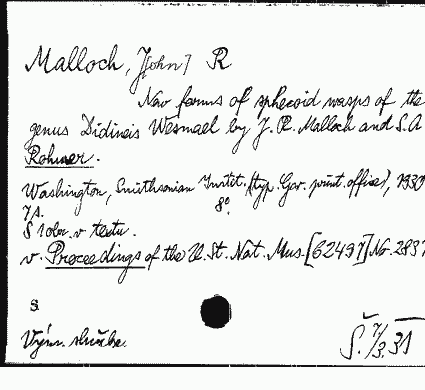 Malloch, J[ohn] R
New forms of sphecoid wasps of the
genus Didineis Wesmael by J. R. Malloch and S. A
Rohwer.
Washington, Smithsonian Instit. (typ. Gov. print. office), 1930
7 s. 8°.
S 1 obr. v textu.
v. Proceedings of the U. St. Nat. Mus. [62497] Nr. 2837
S
Vým. služba.
Š. 7/3. 31